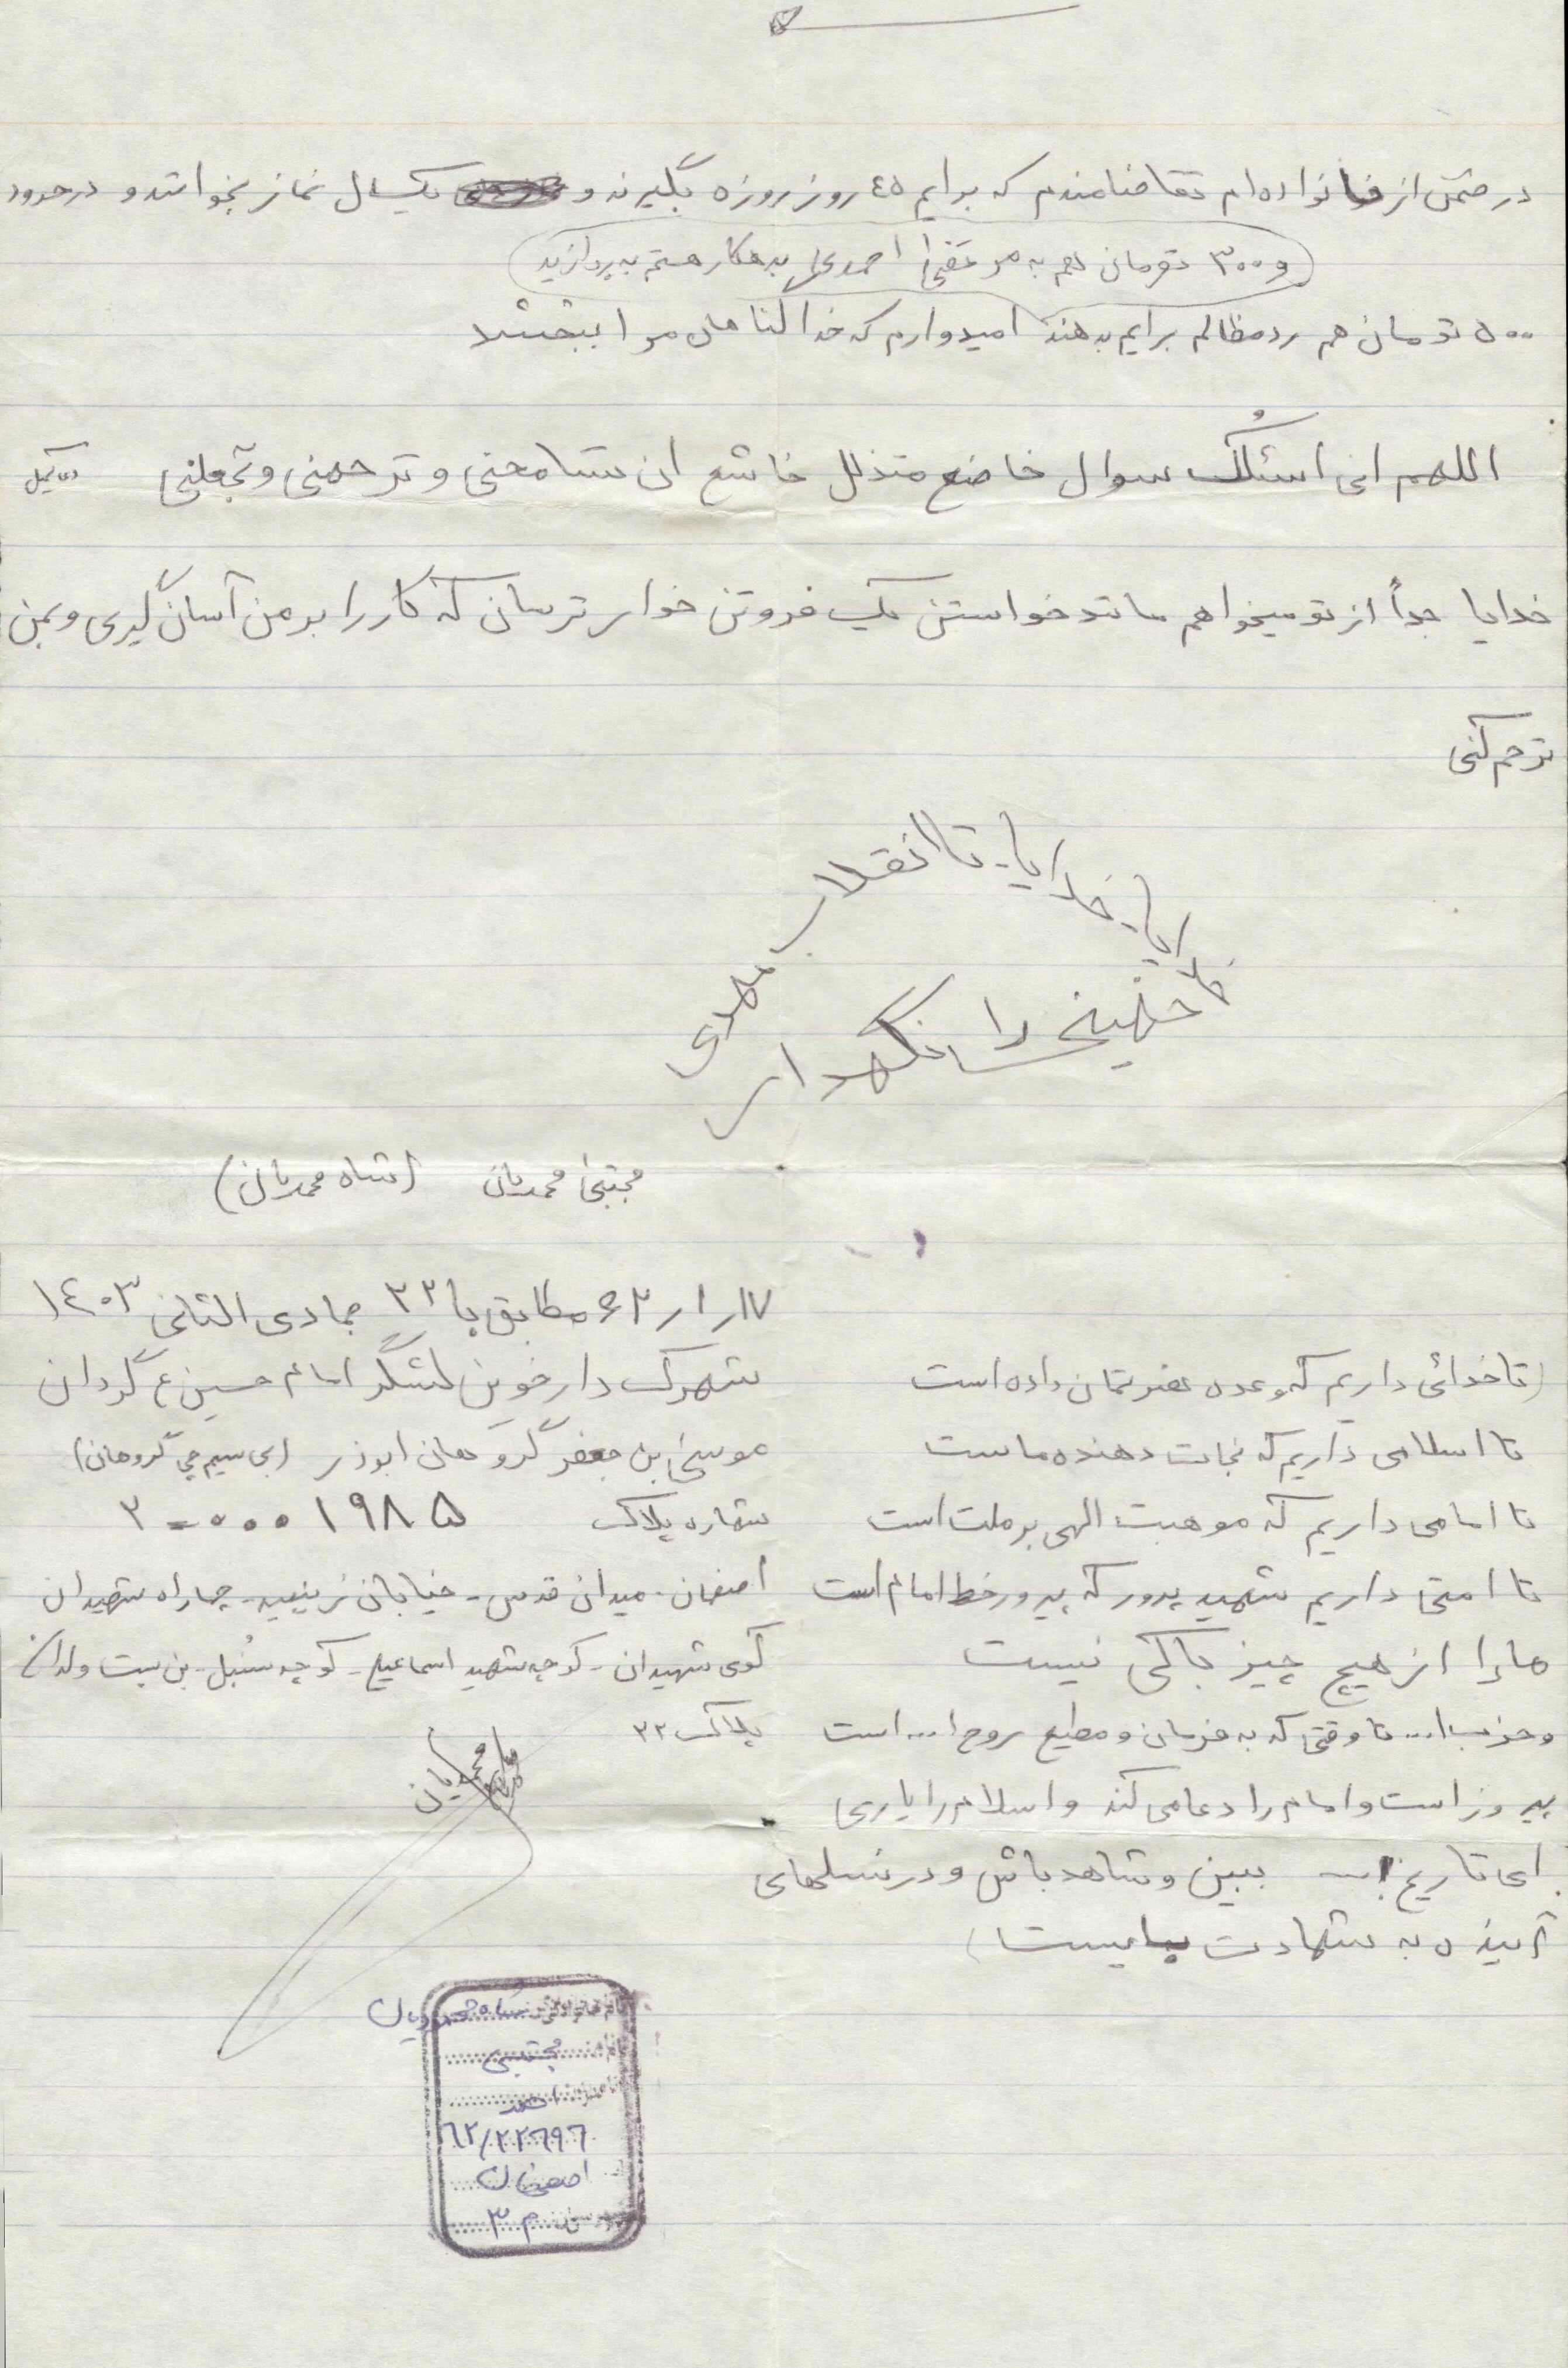 در ضمن از خانواده ام تقاضامندم که برایم ٤٥ روز روزه بگیرند و یکسال نماز بخوانند و در حدود
و ۳۰۰ تومان هم به مرتضی احمدی بدهکار هستم به پردازید
۵۰۰ تومان هم رد مظالم برایم بدهند امیدوارم که خدا گناهان مرا ببخشد
اللهم انی اسئلُک سوال خاضع متذلل خاشع ان تسامحنی و ترحمنی و تجعلنی دعا کمیل
خدایا جداً از تو میخواهم مانند خواستن یک فروتن خوار ترسان که کار را بر من آسان گیری و بمن
ترحم کنی
خدایا، خدایا، تا انقلاب مهدی
خمینی را نگهدار
مجتبی محمدیان (شاه محمدیان)
۱۷ر۱ر۶۲ مطابق با ۲۲ جمادی الثانی ۱٤۰۳
شهرک دارخوین لشگر امام حسین ع گردان
موسی بن جعفر گروهان ابوذر (بی سیم چی گروهان)
شماره پلاک ۲-۰۰۰۱۹۸۵
اصفهان - میدان قدس - خیابان زینبیه - چهاراه شهیدان
کوی شهیدان - کوچه شهید اسماعیلی - کوچه سُنبل - بن بست ولدان
پلاک ۲۲
محمدیان
(تا خدائی داریم که وعده نصرتمان داده است
تا اسلامی داریم که نجات دهنده ماست
تا امامی داریم که موهبت الهی بر ملت است
تا امتی داریم شهید پرور که پیرو خط امام است
ما را از هیچ چیز باکی نیست
و حزب ا... تا وقتی که به فرمان و مطیع روح ا... است
پیروز است و امام را دعا می کند و اسلام را یاری
ای تاریخ ببین و شاهد باش و در نسلهای
آینده به شهادت بایست)
نام خانوادگی شاه محمدیان
نام مجتبی
نام پدر احمد
۶۲/۲۲۶۹۶
اصفهان
ن م ۳